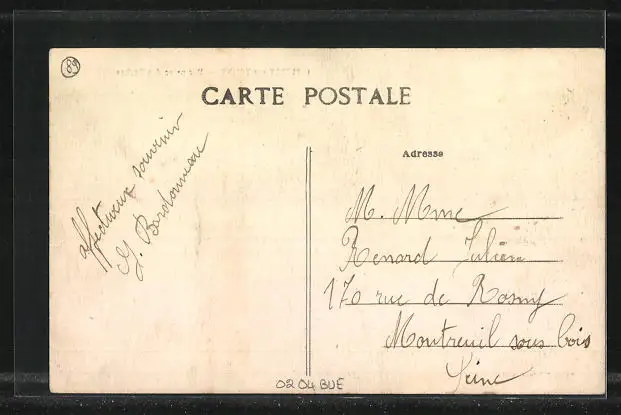 89
CARTE POSTALE
Adresse
affectueux souvenir
G. Bardonneau
M. Mme
Renard Julien
170 rue de Rosny
Montreuil sous bois
Seine
0204BUE